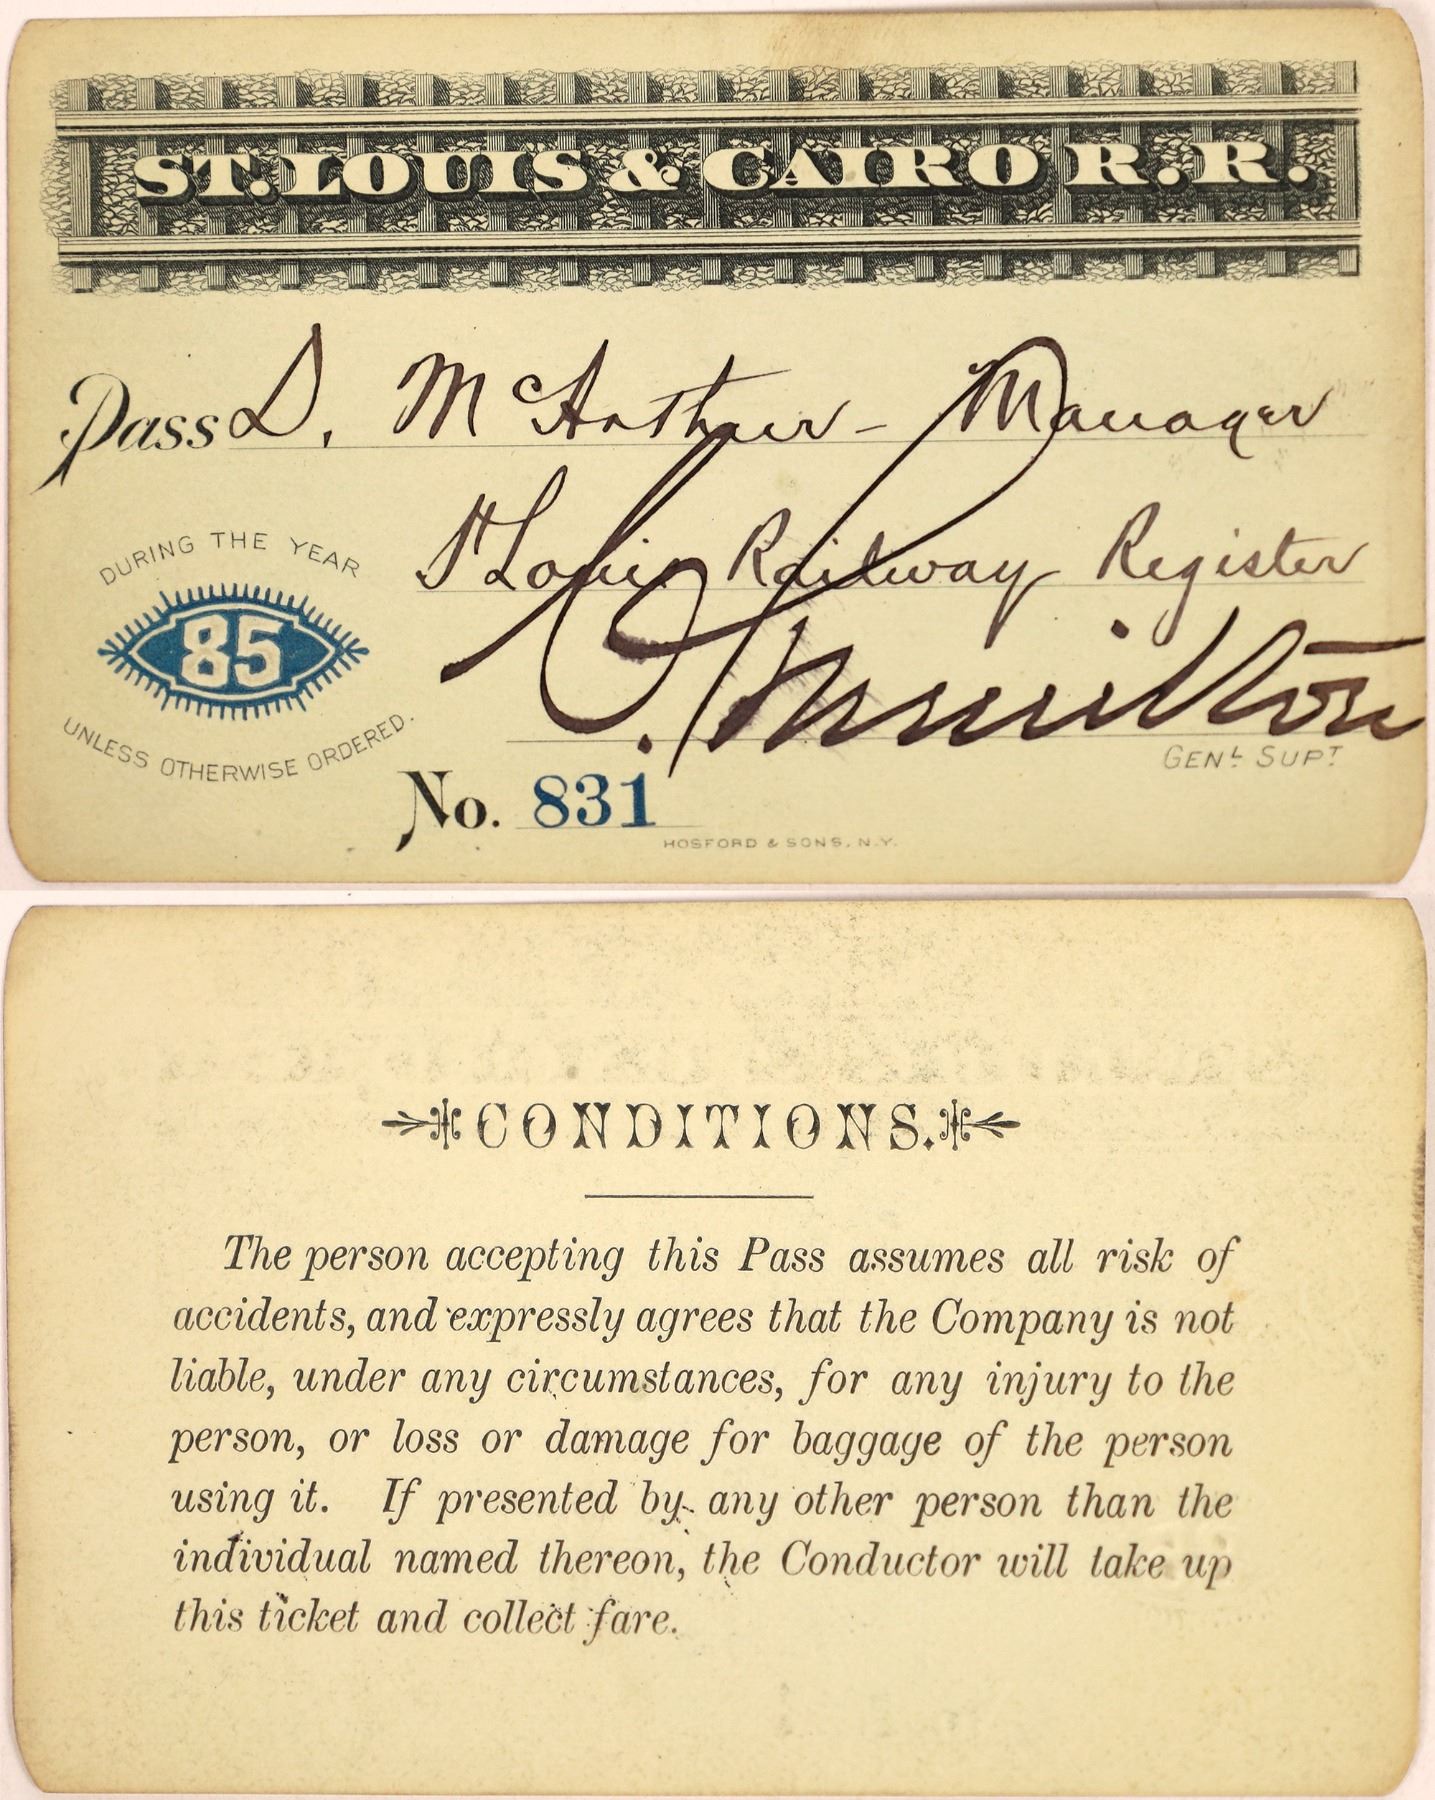 ST. LOUIS & CAIRO R. R.
Pass D. McArthur - Manager
St Louis Railway Register
DURING THE YEAR
85
UNLESS OTHERWISE ORDERED.
C. Hamilton
GENL SUPT
No. 831
HOSFORD & SONS, N.Y.
CONDITIONS.
The person accepting this Pass assumes all risk of
accidents, and expressly agrees that the Company is not
liable, under any circumstances, for any injury to the
person, or loss or damage for baggage of the person
using it. If presented by any other person than the
individual named thereon, the Conductor will take up
this ticket and collect fare.